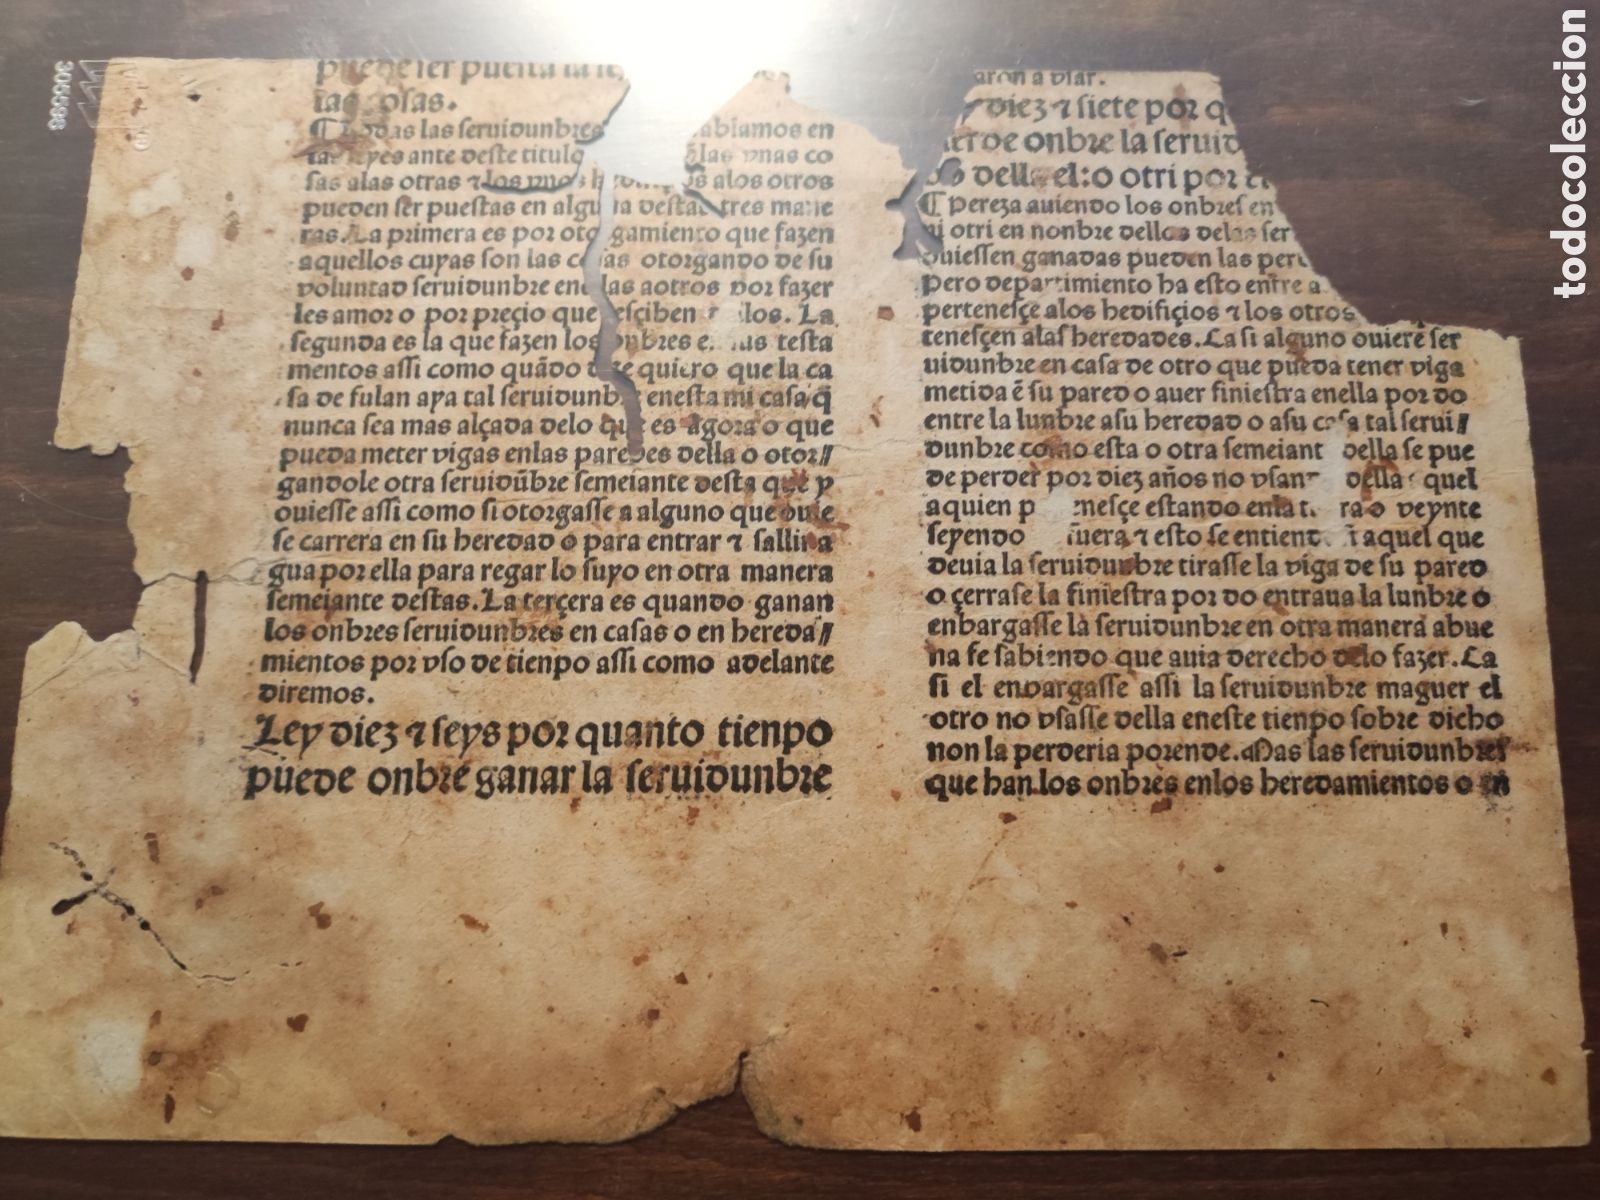 puede ser puesta la
las cosas.
¶ Todas las seruidunbres ablamos en
las leyes ante deste titulo las vnas co
sas alas otras ⁊ los vnos alos otros
pueden ser puestas en alguna destas tres mane
ras. La primera es por otorgamiento que fazen
aquellos cuyas son las cosas otorgando de su
voluntad seruidunbre en ellas a otros por fazer
les amor o por preçio que resçiben dellos. La
segunda es la que fazen los onbres en sus testa
mentos assi como quãdo dize quiero que la ca
sa de fulan aya tal seruidunbre enesta mi casa q̃
nunca sea mas alçada delo que es agora o que
pueda meter vigas enlas paredes della o otor//
gandole otra seruidũbre semeiante desta que y
ouiesse assi como si otorgasse a alguno que ouie
se carrera en su heredad o para entrar ⁊ sallir a
gua por ella para regar lo suyo en otra manera
semeiante destas. La terçera es quando ganan
los onbres seruidunbres en casas o en hereda//
mientos por vso de tienpo assi como adelante
diremos.
Ley diez ⁊ seys por quanto tienpo
puede onbre ganar la seruidunbre
aron a vsar.
y diez ⁊ siete por q
ierde onbre la seruid
do della el: o otri por
¶ Pereza auiendo los onbres en
ni otri en nonbre dellos delas ser
ouiessen ganadas pueden las per
Pero departimiento ha esto entre a
pertenesçe alos hedifiçios ⁊ los otros
tenesçen alas heredades. Ca si alguno ouiere ser
uidunbre en casa de otro que pueda tener viga
metida ẽ su pared o auer finiestra enella por do
entre la lunbre asu heredad o asu casa tal serui//
dunbre como esta o otra semeiant della se pue
de perder por diez años no vsan della aquel
aquien p nesçe estando enla tierra o veynte
seyendo fuera ⁊ esto se entiend si aquel que
deuia la seruidunbre tirasse la viga de su pared
o çerrase la finiestra por do entraua la lunbre o
enbargasse la seruidunbre en otra manera abue
na fe sabiendo que auia derecho delo fazer. Ca
si el enbargasse assi la seruidunbre maguer el
otro no vsasse della eneste tienpo sobre dicho
non la perderia porende. Mas las seruidunbres
que han los onbres enlos heredamientos o en
305596
todocoleccion